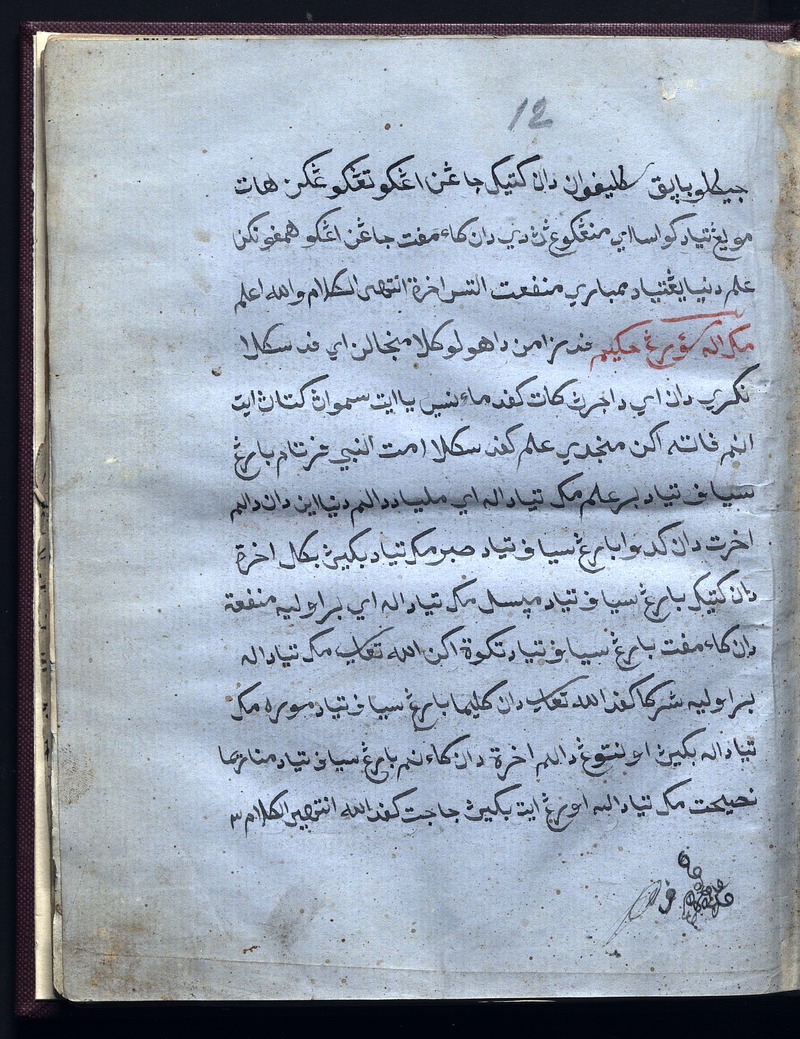 12
جيكلو باپق كليفوان دان كتيݢ جاڠن اڠكو تڠݢوڠكن هات
مو يڠ تياد كواسا اي منڠݢوڠ ڽ دي دان كاءمفت جاڠن اڠكو همفونكن
علم دنيا يڠتياد ممباري منفعت اتس اخرة انتهى الكلام والله اعلم
مك اله سؤرڠ حكيم فد زامن داهولو كلا منجالن اي فد سكلا
نݢري دان اي داجرڽ كات كفد مأنسي يا ايت سموان كتاڽ ايت
انم فاته اكن منجدي علم كفد سكلا امت النبي فرتام بارڠ
سياف تياد برعلم مك تياداله اي ملياد دالم دنيا اين دان دالم
اخرت دان كدوا بارڠ سياف تياد صبر مك تياد بݢيڽ بكل اخرة
دان كتيݢ بارڠ سياف تياد مڽسل مك تياداله اي براوليه منفعة
دان كاءمفت بارڠ سياف تياد تكوة اكن الله تعالى مك تياداله
براوليه شركا كفد الله تعالى دان كليما بارڠ سياف تياد موره مك
تياداله بݢيڽ اونتوڠ دالم اخرة دان كاءنم بارڠ سياف تياد مناريما
نصيحت مك تياداله اورڠ ايت بݢيڽ حاجت كفد الله انتهى الكلام